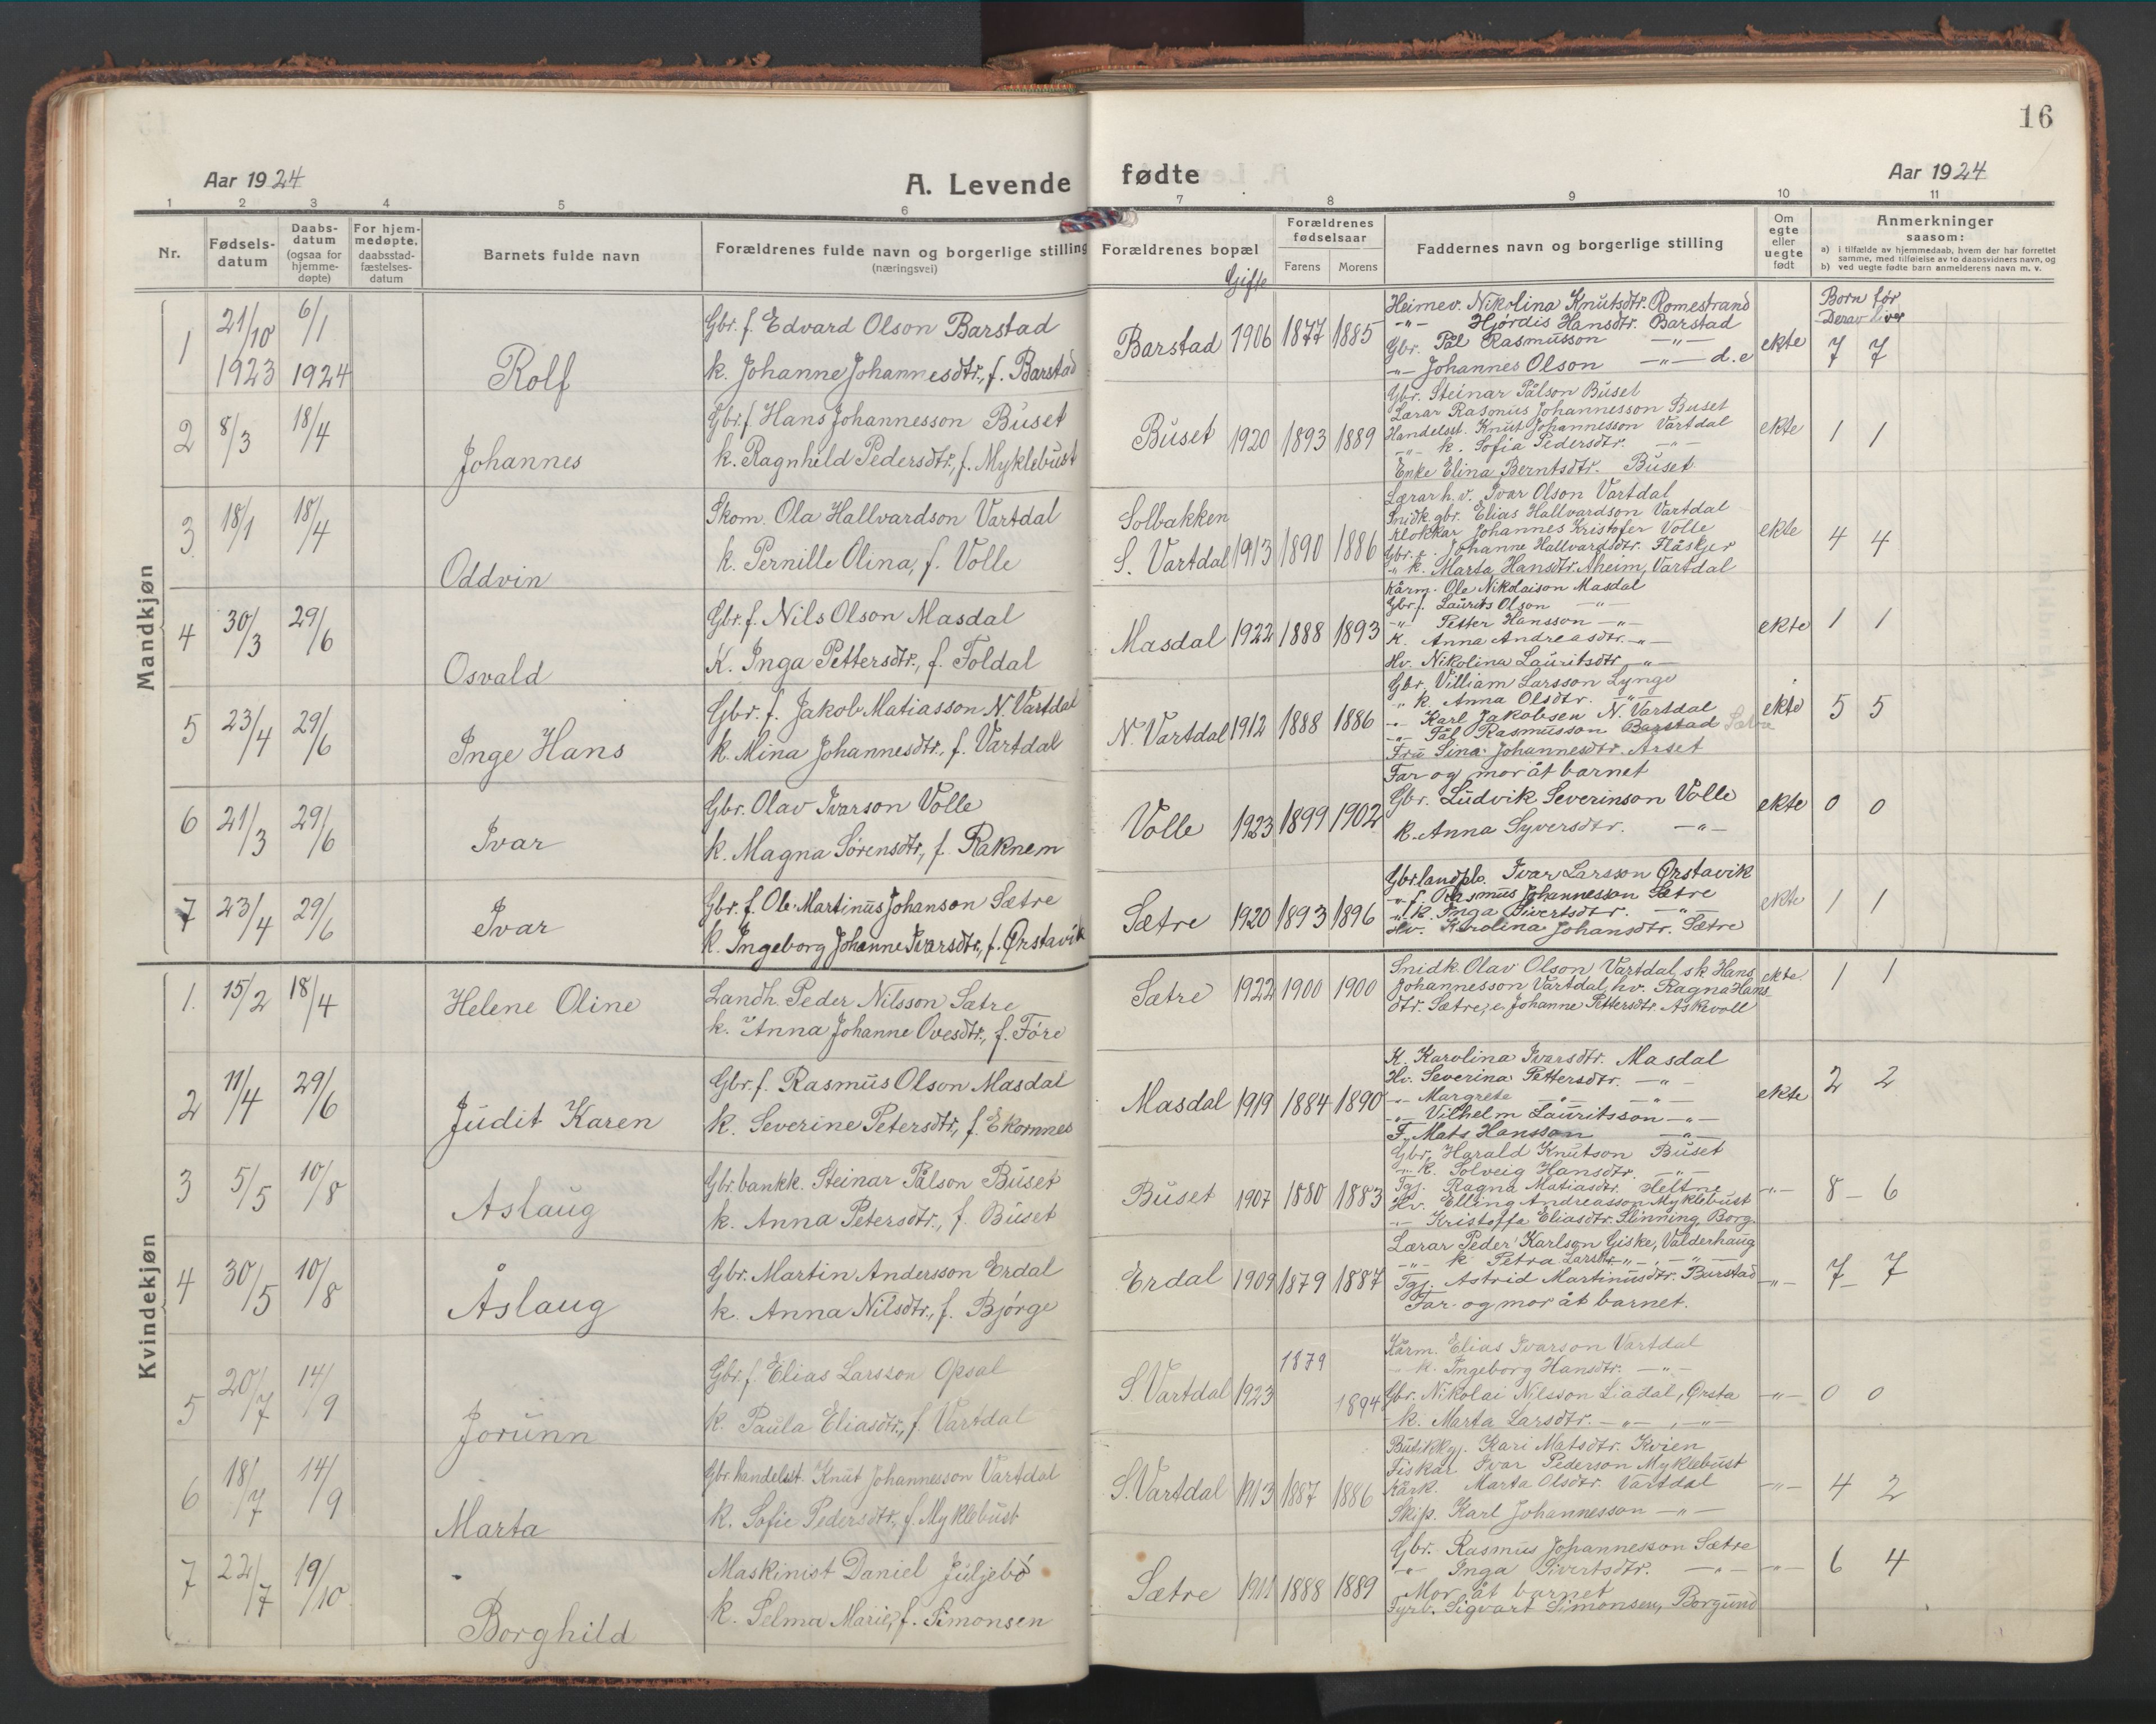 16
Aar 1924
A. Levende fødte
Aar 1924
1 2 3 4 5 6 7 8 9 10 11
Nr.
Fødsels-
datum
Daabs-
datum
(ogsaa for
hjemme-
døpte)
For hjem-
medøpte.
daabsstad-
fæstelses-
datum
Barnets fulde navn
Forældrenes fulde navn og borgerlige stilling
(næringsvei)
Forældrenes bopæl
Gifte
Forældrenes
fødselsaar
Farens Morens
Faddernes navn og borgerlige stilling
Om
egte
eller
uegte
født
Anmerkninger
saasom:
a) i tilfælde av hjemmedaab, hvem der har forrettet
samme, med tilføielse av to daabsvidners navn, og
b) ved uegte fødte barn anmelderens navn m. v.
Born før
Derav liver
Mandkjøn
1 21/10 1923 6/1 1924 Rolf
Gbr. f. Edvard Olson Barstad
k. Johanne Johannesdtr., f. Barstad
Barstad 1906 1877 1885
Heimev. Nikolina Knutsdtr. Romestrand
-"- Hjørdis Hansdtr. Barstad
Gbr. Pål Rasmusson -"-
-"- Johannes Olson -"- d.e
ekte 7 7
2 8/3 18/4 Johannes
Gbr. f. Hans Johannesson Buset
k. Ragnhild Pedersdtr., f. Myklebust
Buset 1920 1893 1889
Gbr. Steinar Pålson Buset
Lærar Rasmus Johannesson Buset
Handelsst. Knut Johannesson Vartdal
-"- k. Sofia Pedersdtr. -"-
Enke Elina Berntsdtr. Buset
ekte 1 1
3 18/1 18/4 Oddvin
Skom. Ola Hallvardson Vartdal
k. Pernille Olina, f. Volle
Solbakken
S. Vartdal 1913 1890 1886
Lærar h.v. Ivar Olson Vartdal
Snidk. gbr. Elias Hallvardson Vartdal
Klokkar Johannes Kristofer Volle
Gbr. e. Johanne Hallvardsdtr. Flåskjer
" k. Marta Hansdtr. Aheim, Vartdal
ekte 4 4
4 30/3 29/6 Osvald
Gbr. f. Nils Olson Masdal
K. Inga Pettersdtr., f. Foldal
Masdal 1922 1888 1893
Kårm. Ole Nikolaison Masdal
Gbr. f. Laurits Olson -"-
-"- Petter Hansson -"-
K. Anna Andreasdtr. -"-
Hv. Nikolina Lauritsdtr. -"-
ekte 1 1
5 23/4 29/6 Inge Hans
Gbr. f. Jakob Matiasson N. Vartdal
k. Mina Johannesdtr., f. Vartdal
N. Vartdal 1912 1888 1886
Gbr. Villiam Larsson Lynge
" k. Anna Olsdtr. -"-
-"- Karl Jakobsen N. Vartdal
-"- Pål Rasmusson Barstad
Fru Sina Johannesdtr. Årset
ekte 5 5
6 21/3 29/6 Ivar
Gbr. Olav Ivarson Volle
k. Magna Sørensdtr., f. Raknem
Volle 1923 1899 1902
Far og mor åt barnet
Gbr. Ludvik Severinson Volle
k. Anna Syversdtr. -"-
ekte 0 0
7 23/4 29/6 Ivar
Gbr. f. Ole Martinus Johanson Sætre
k. Ingeborg Johanne Ivarsdtr., f. Ørstavik
Sætre 1920 1893 1896
Gbr. landpb. Ivar Larsson Ørstavik
-"- f. Rasmus Johannesson Sætre
-"- k. Inga Sivertsdtr. -"-
Hv. Karolina Johansdtr. Sætre
ekte 1 1
Kvindekjøn
1. 15/2 18/4 Helene Oline
Landh. Peder Nilsson Sætre
k. Anna Johanne Ovesdtr., f. Føre
Sætre 1922 1900 1900
Snidk. Olav Olson Vartdal, sk. Hans
Johannesson Vartdal, hv. Ragna Hans-
dtr. Sætre, e. Johanne Pettersdtr. Askvoll
ekte. 1 1
2 11/4 29/6 Judit Karen
Gbr. f. Rasmus Olson Masdal
k. Severine Petersdtr., f. Ekornnes
Masdal 1919 1884 1890
K. Karolina Ivarsdtr. Masdal
Hv. Severina Pettersdtr. -"-
-"- Margrete -"- -"-
-"- Vilhelm Lauritsson -"-
F. Mats Hansson -"-
ekte 2 2
3 5/5 10/8 Aslaug
Gbr. bankk. Steinar Pålson Buset
k. Anna Petersdtr., f. Buset
Buset 1907 1880 1883
Gbr. Harald Knutson Buset
-"- k. Solveig Hansdtr. -"-
Tgj. Ragna Matiasdtr. Heltne
Hv. Elling Andreasson Myklebust
-"- Kristoffa Eliasdtr. Slinning, Borg.
-"- 8 - 6
4 30/5 10/8 Åslaug
Gbr. Martin Andersson Erdal
k. Anna Nilsdtr., f. Bjørge
Erdal 1909 1879 1887
Lærar Peder Karlson Giske, Valderhaug
-"- k Petra Larsdtr. -"- , -"-
Tgj. Astrid Martinusdtr. Barstad
Far og mor åt barnet.
-"- 7 - 7
5 20/7 14/9 Jorunn
Gbr. f. Elias Larsson Opsal
k. Paula Eliasdtr., f. Vartdal
S. Vartdal 1923 1879 1894
Kårm. Elias Ivarson Vartdal
-"- k. Ingeborg Hansdtr. -"-
Gbr. Nikolai Nilsson Liadal, Ørsta
- k. Marta Larsdtr. -"- , -"-
-"- 0 0
6 18/7 14/9 Marta
Gbr. handelsst. Knut Johannesson Vartdal
k. Sofie Pedersdtr., f. Myklebust
S. Vartdal 1913 1887 1886
Butikkgj. Kari Matsdtr. Kvien
Fiskar Ivar Pederson Myklebust
Kårk. Marta Olsdtr. Vartdal
Skip. Karl Johannesson -"-
-"- 4 2
7 22/7 19/10 Borghild
Maskinist Daniel Juljebø
k. Selma Marie, f. Simonsen
Sætre 1911 1888 1889
Gbr. Rasmus Johannesson Sætre
-"- Inga Sivertsdtr. -"-
Mor åt barnet
Fyrb. Sigvart Simonsen, Borgund
-"- 6 4